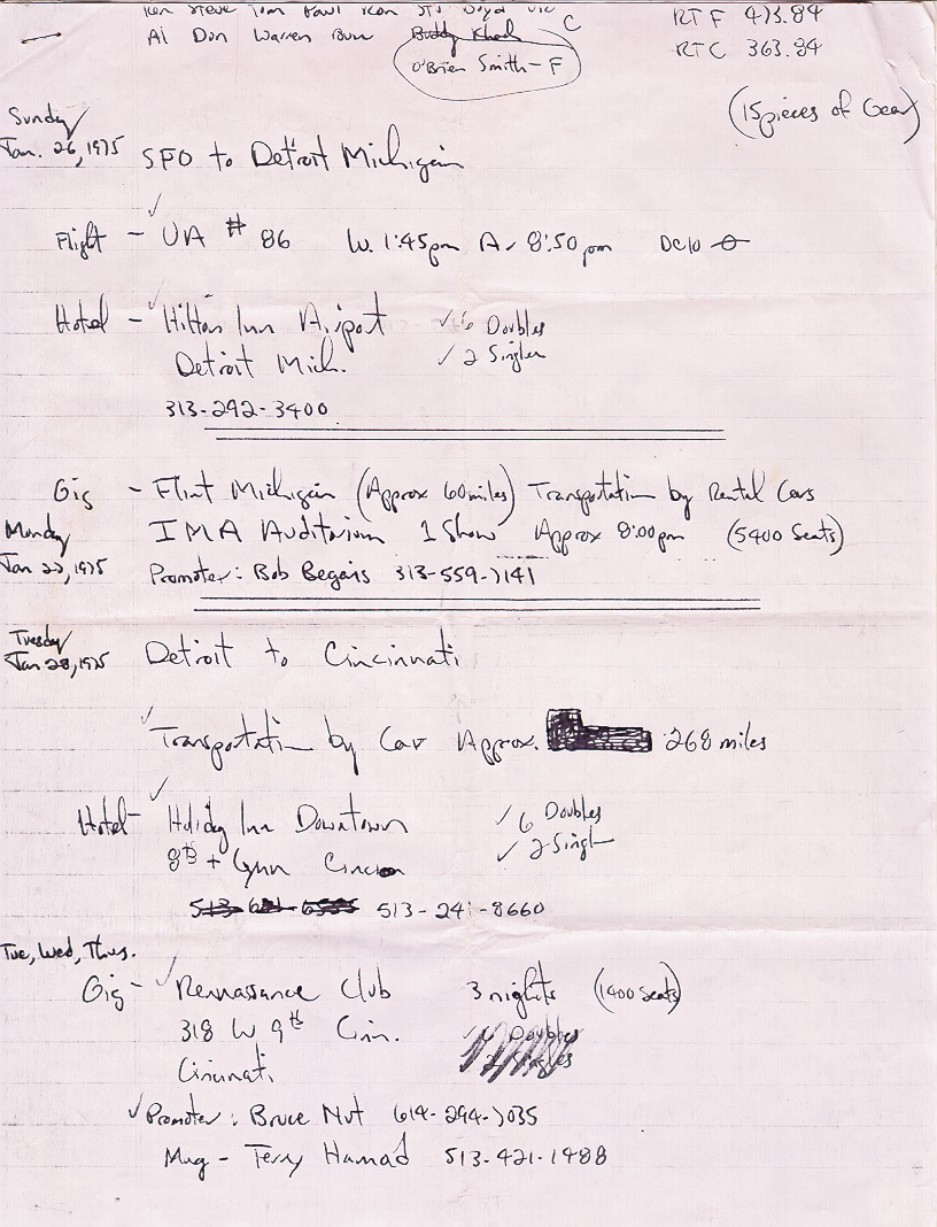 Ken Steve Tom Paul Ken
Al Don Warren C
O'Brien Smith - F
RT F 473.84
RT C 363.84
(15 pieces of Gear)
Sunday
Jan. 26, 1975
SFO to Detroit Michigan
Flight - UA # 86 Lv. 1:45pm Ar 8:50pm DC10
Hotel - Hilton Inn Airport ✓ 6 Doubles
Detroit Mich. ✓ 2 Singles
313-292-3400
Gig - Flint Michigan (Approx 60 miles) Transportation by Rental Cars
Monday IMA Auditorium 1 Show Approx 8:00pm (5400 Seats)
Jan 27, 1975 Promoter: Bob Begans 313-559-7141
Tuesday
Jan 28, 1975
Detroit to Cincinnati
Transportation by Car Approx. 268 miles
Hotel - Holiday Inn Downtown ✓ 6 Doubles
8th + Lynn ✓ 2 Singl
513-241-8660
Tue, Wed, Thurs.
Gig - Rennassance Club 3 nights (1400 seats)
318 W 9th Cin.
Cincinnati
✓ Promoter: Bruce Nut 614-294-7035
Mng - Terry Hamad 513-421-1488